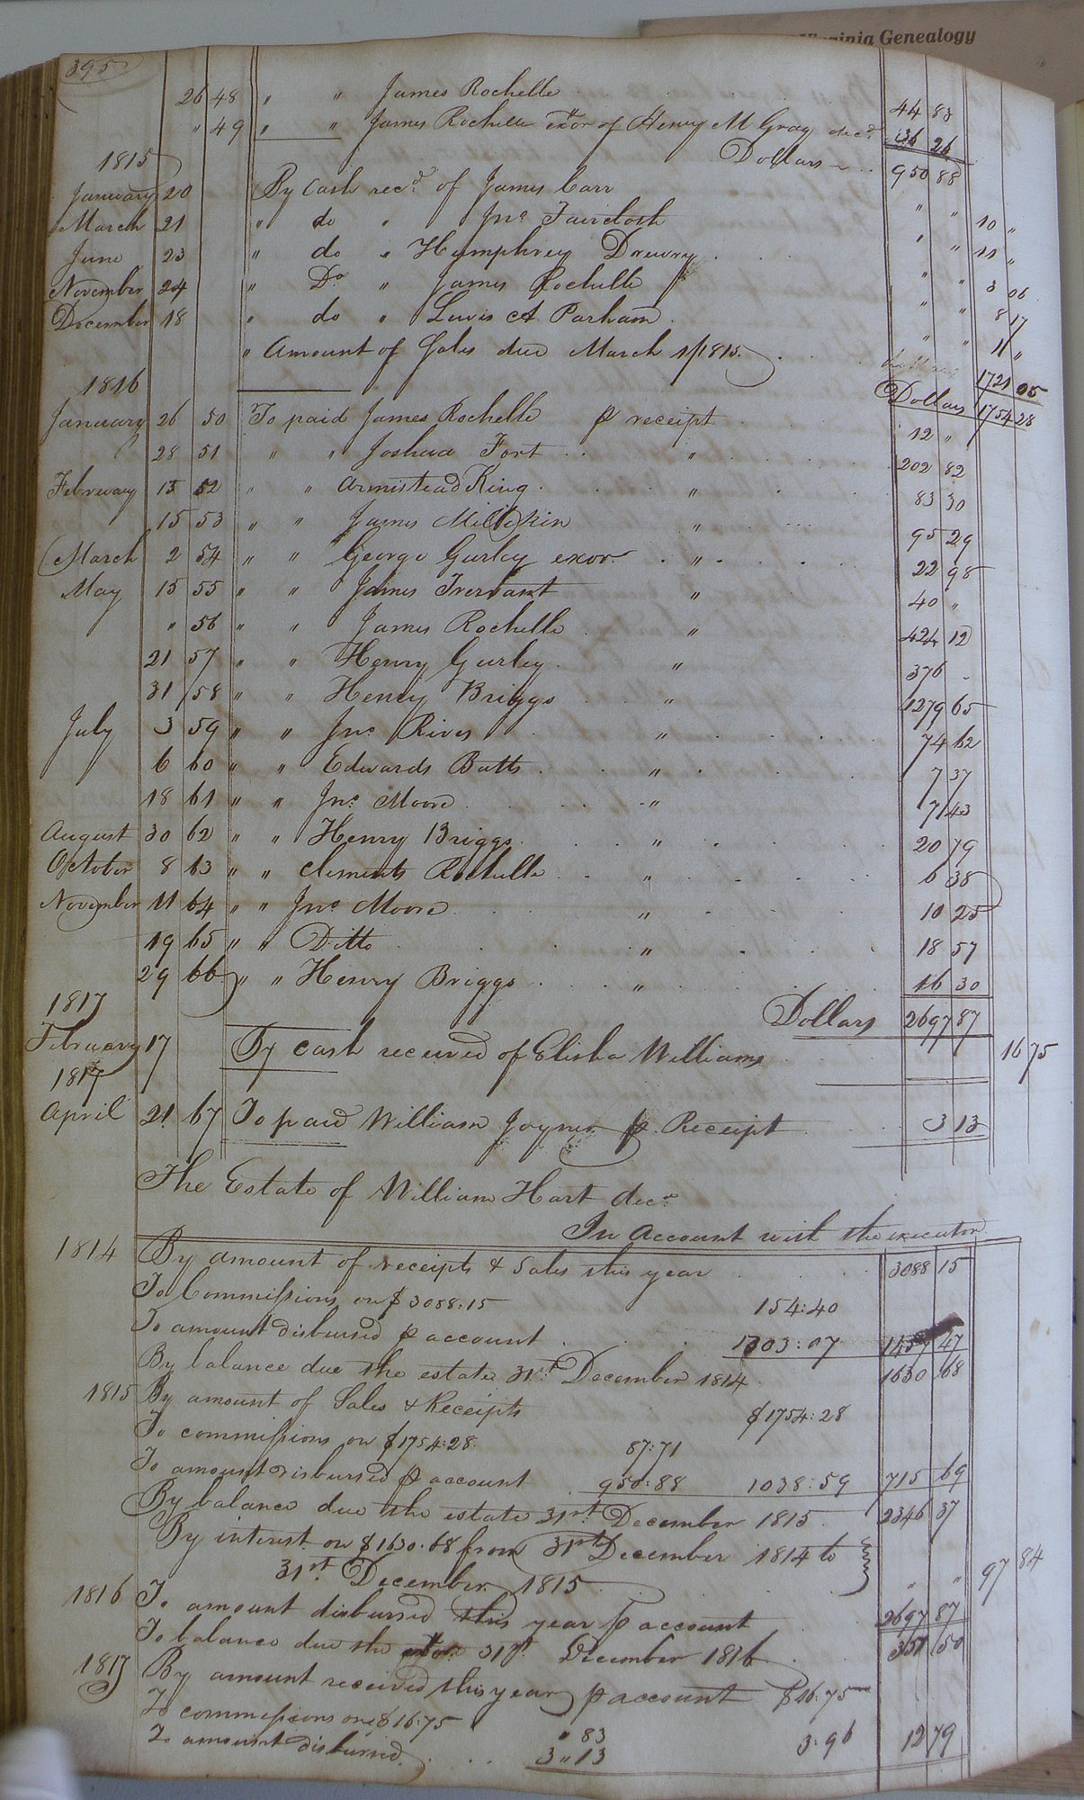 Virginia Genealogy
395
26 48 " " James Rochelle 44 83
" 49 " " James Rochelle exor of Henry M Gray decd 36 26
Dollars 950 88
1815
January 20 By Cash recd of James Carr " " 10 "
March 21 " do " Jno Faircloth " " 11 "
June 23 " do " Humphrey Drewry " " 3 06
November 24 " Do " James Rochelle " " 8 17
December 18 " do " Lewis A Parham " " 11 "
" Amount of Sales due March 1st 1815 1721 05
Dollars 1754 28
1816
January 26 50 To paid James Rochelle p receipt 12 "
28 51 " " Joshua Fort " 202 82
February 15 52 " " Armistead King " 83 30
15 53 " " James Millikin " 95 29
March 2 54 " " George Gurley exor " 22 98
May 15 55 " " James Trezvant " 40 "
" 56 " " James Rochelle " 424 12
21 57 " " Henry Gurley " 376 -
31 58 " " Henry Briggs " 1279 65
July 3 59 " " Jno Rives " 74 62
6 60 " " Edwards Butts " 7 37
18 61 " " Jno Moore " 7 43
August 30 62 " " Henry Briggs " 20 79
October 8 63 " " Clements Rochelle " 6 38
November 11 64 " " Jno Moore " 10 25
19 65 " " Ditto " 18 57
29 66 " " Henry Briggs " 16 30
Dollars 2697 87
1817
February 17 By cash received of Elisha Williams 16 75
1817
April 21 67 To paid William Joyner p Receipt 3 13
The Estate of William Hart decd
In Account with the executor
1814 By amount of receipts & Sales this year 3088 15
To Commissions on $3088:15 154:40
To amount disbursed p account 1303:07 1457 47
By balance due the estate 31st December 1814 1630 68
1815 By amount of Sales & Receipts $1754:28
To commissions on $1754:28 87:71
To amount disbursed p account 950:88 1038:59 715 69
By balance due the estate 31st December 1815 2346 37
By interest on $1630.68 from 31st December 1814 to
31st December 1815 " " 97 84
1816 To amount disbursed this year p account 2697 87
To balance due the exor 31st December 1816 351 50
1817 By amount received this year p account $16.75
To commissions on $16.75 " 83
To amount disbursed 3 " 13 3.96 12 79